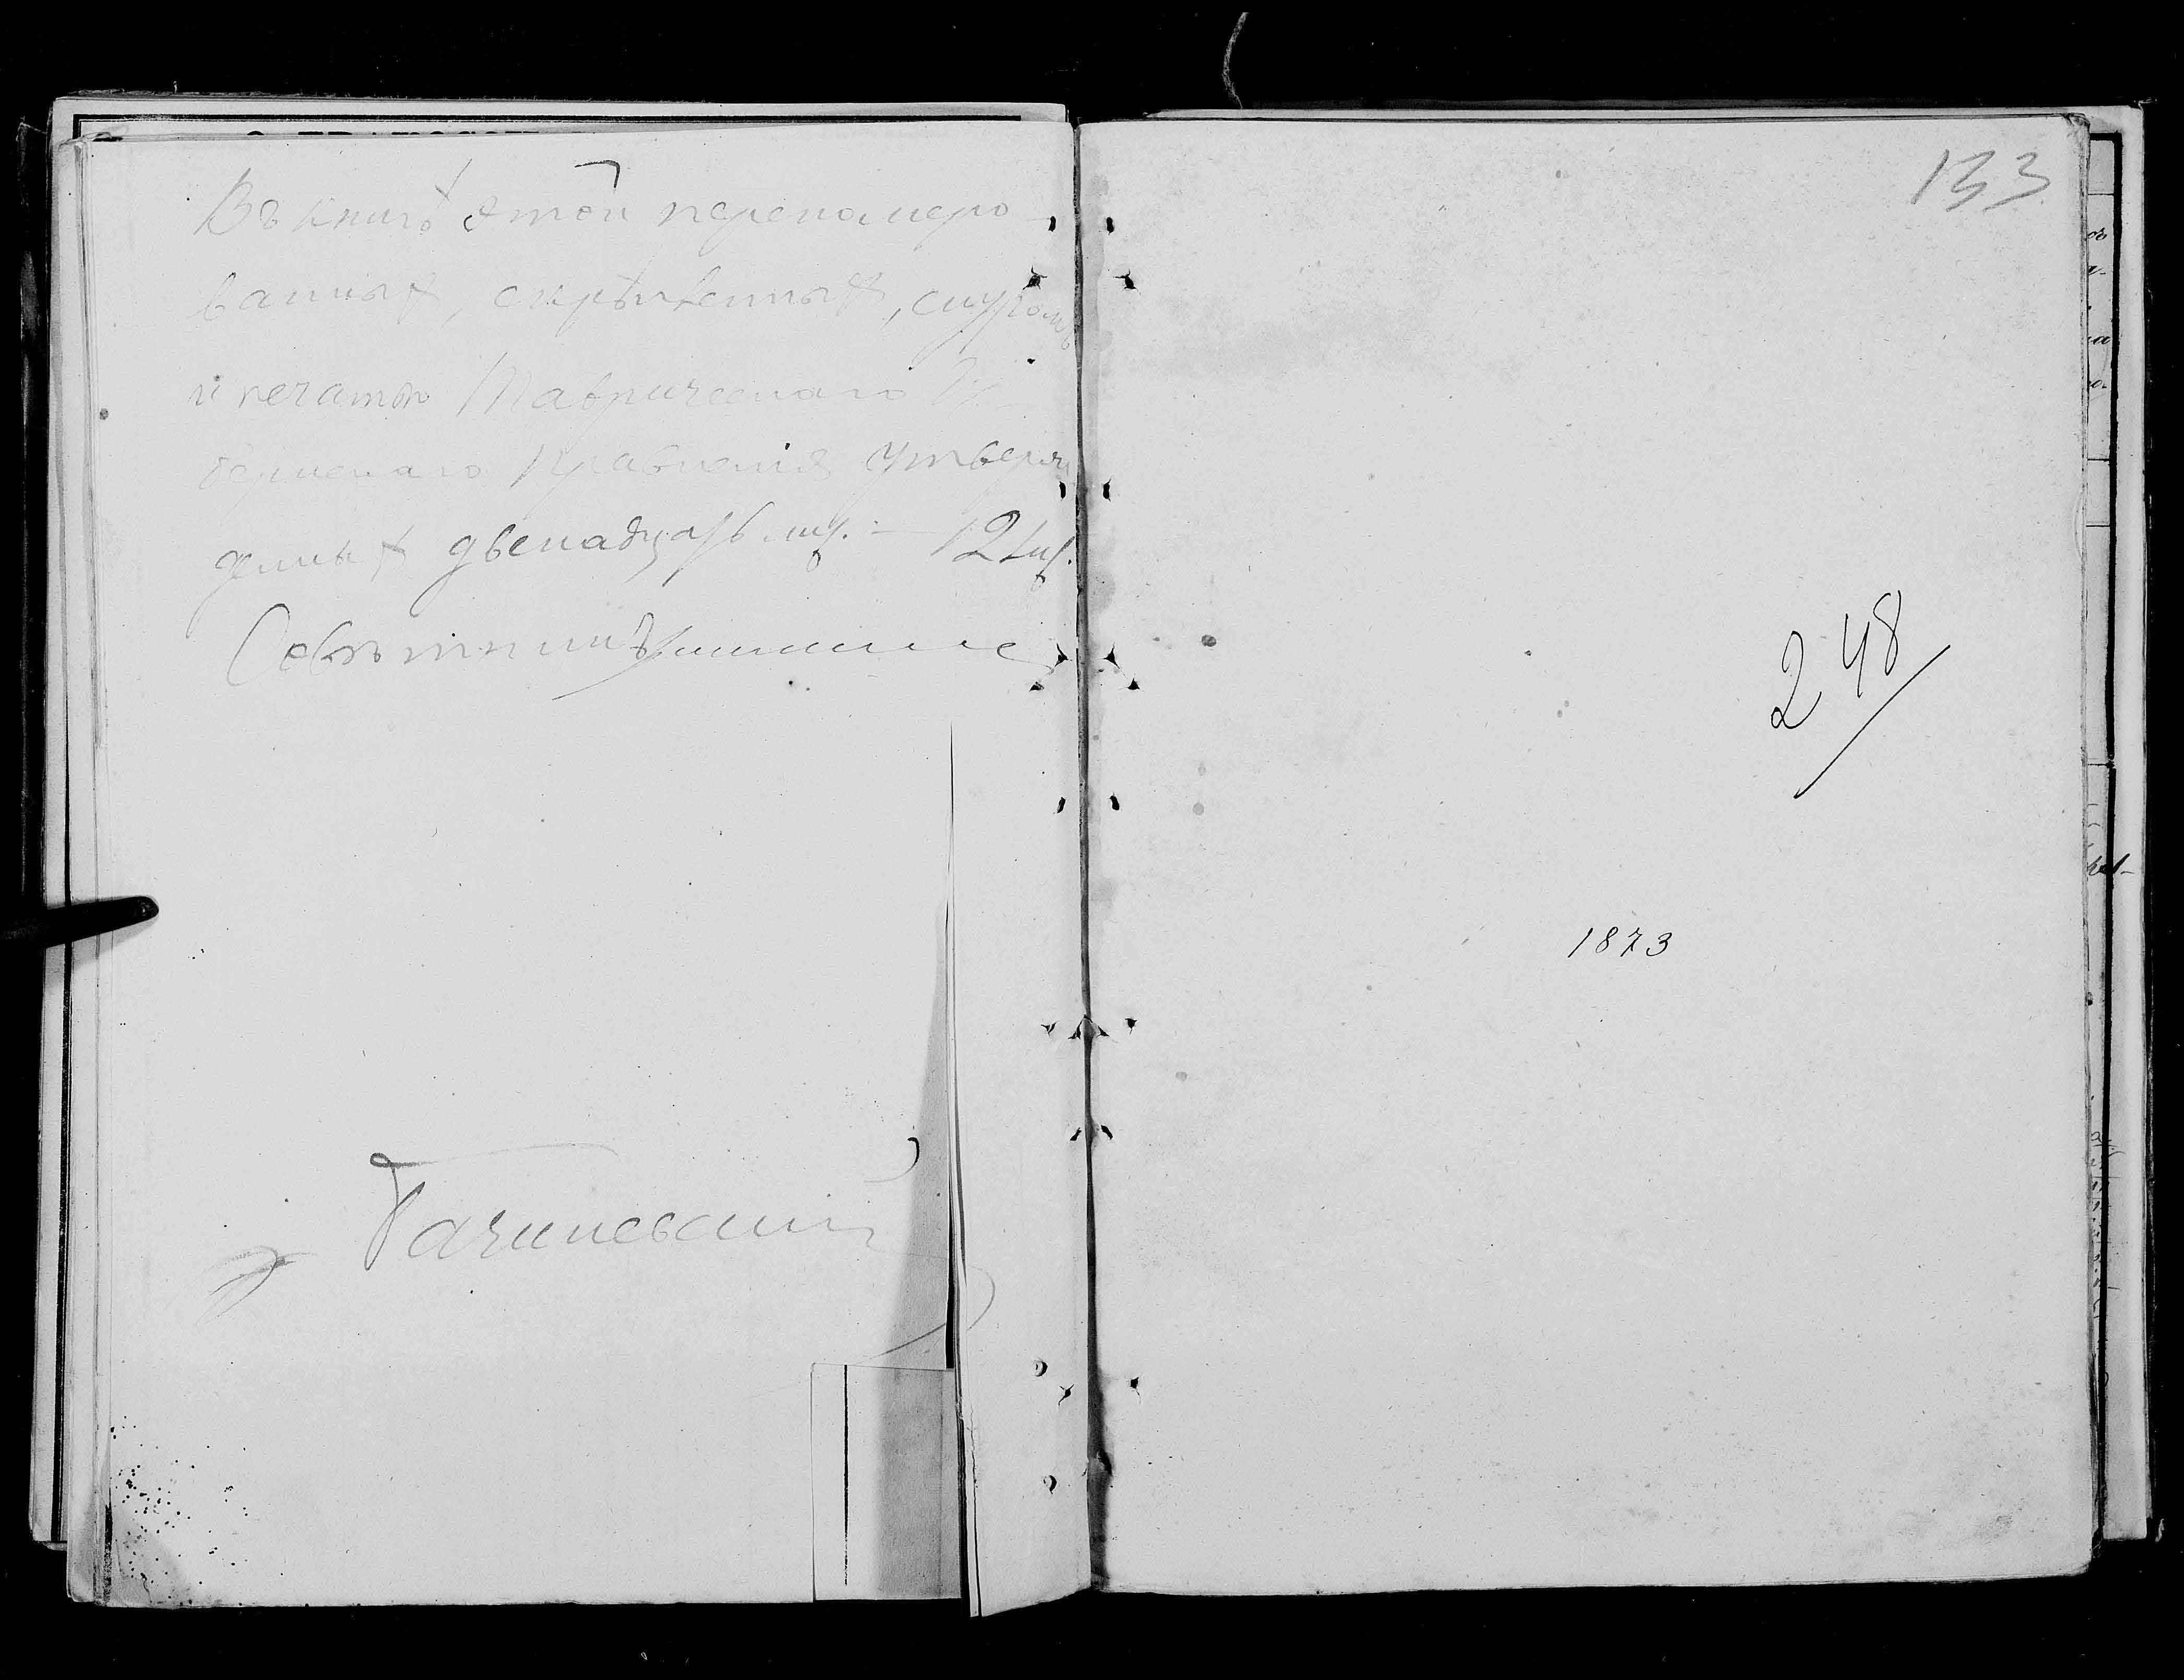 Въ книгѣ этой перенамеро-
ванныхъ, скрѣпленныхъ, шнуромъ
и печатью Таврическаго Гу-
бернскаго Правленія утверж
денныхъ двенадцать лис. — 12 лис.
Совѣтникъ
133
248
1873